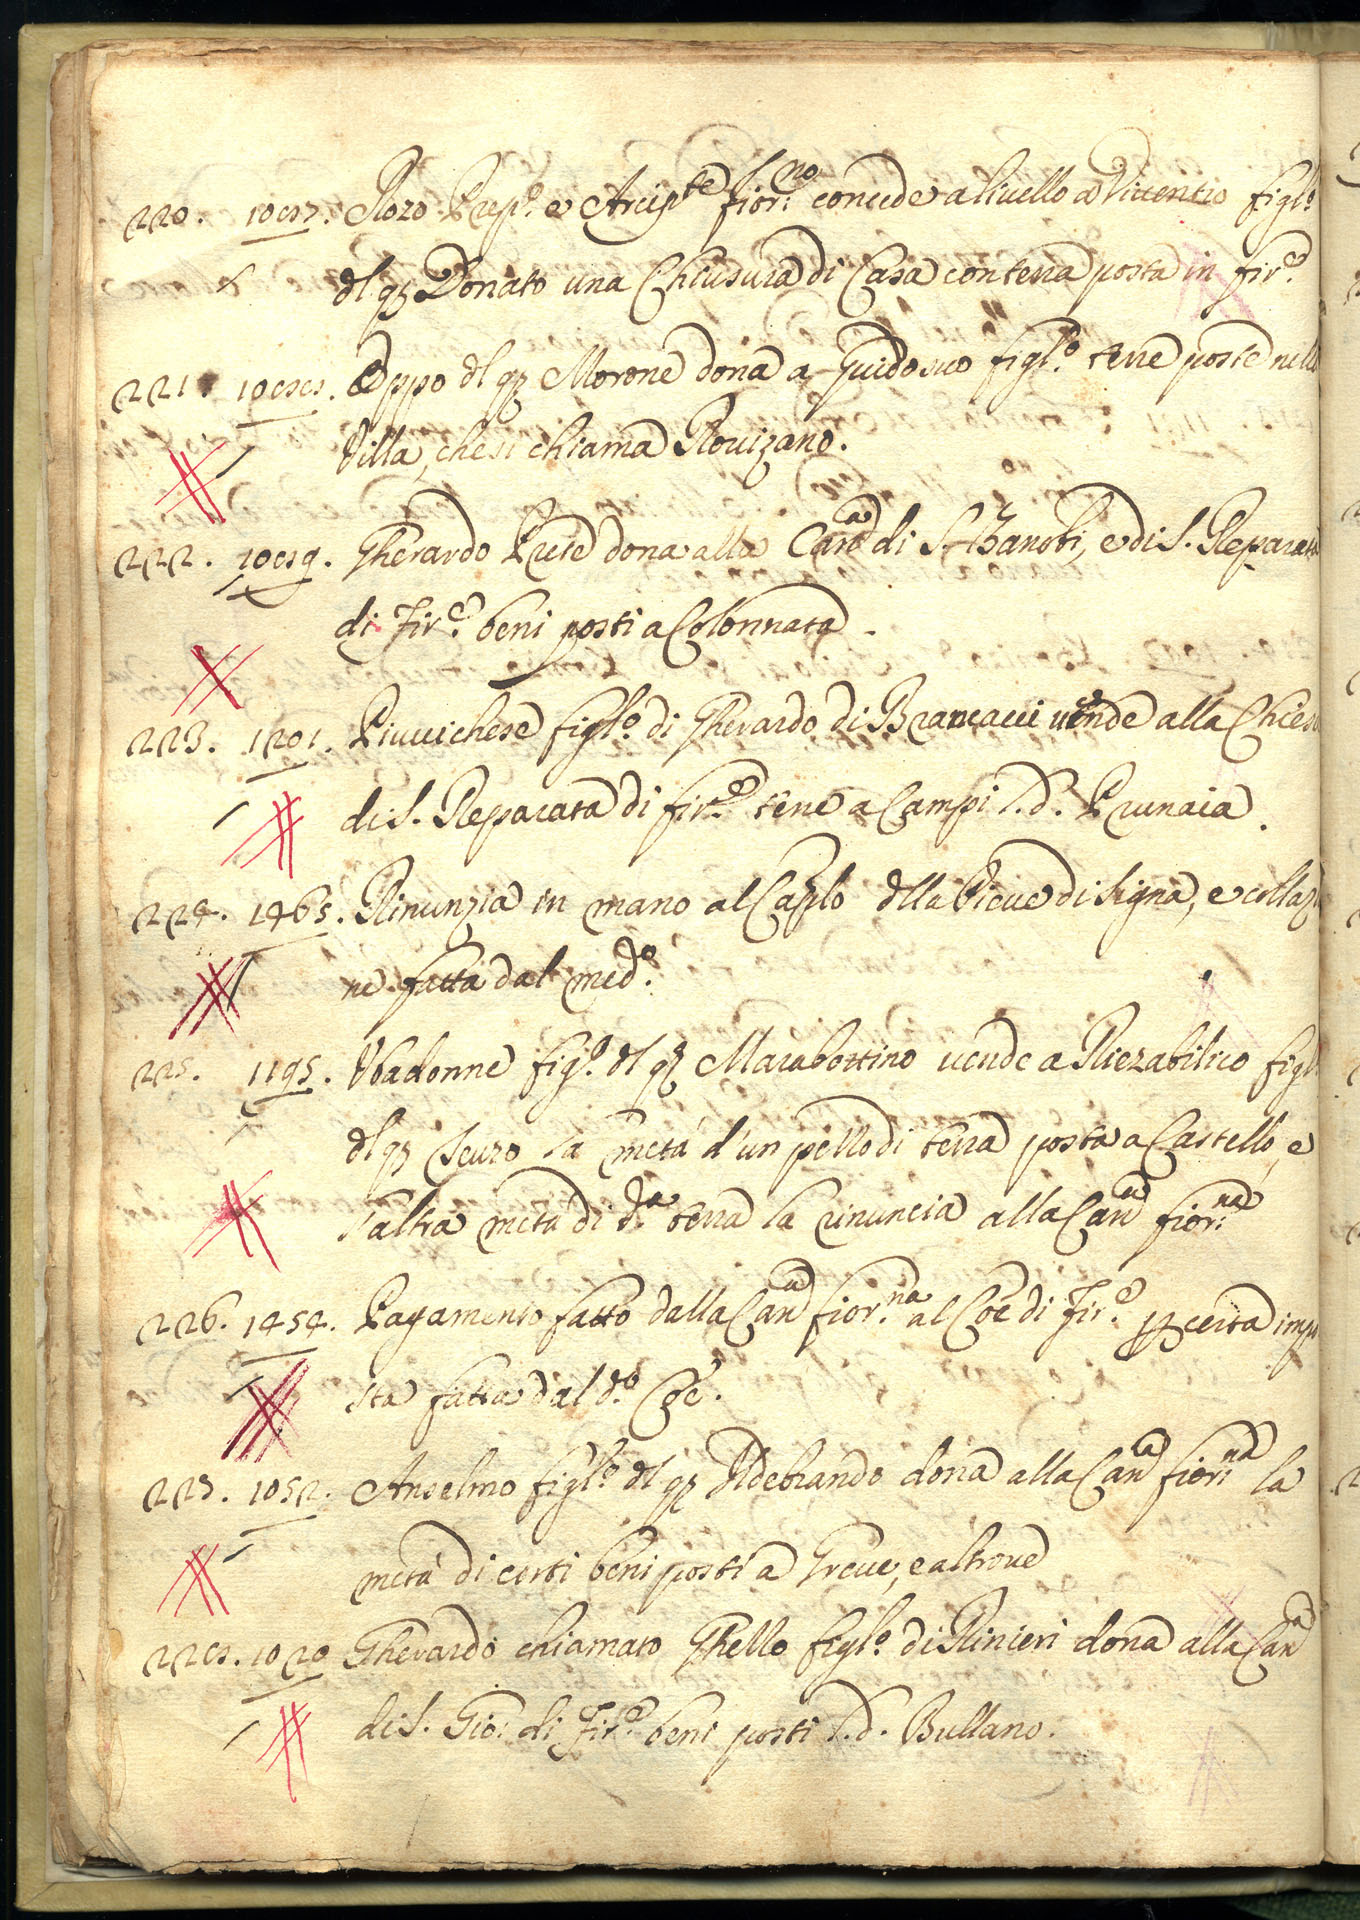 220. 1087. Rozo Prep.o e Arcip.te fior.no concede a livello a Vicentio figl.o
dl q Donato una Chiusura di Casa con terra posta in fir.e
221. 1088. Appo dl q Morone dona a Guido suo figl.o terre poste nella
Villa, che si chiama Rovizano.
222. 1089. Gherardo Prete dona alla Can.a di S. Zanobi, e di S. Reparata
di Fir.e beni posti a Colonnata.
223. 1201. Piuvichese figl.o di Gherardo di Brancacci vende alla Chiesa
di S. Reparata di fir.e terre a Campi l.d. Prunaia.
224. 1465. Rinunzia in mano al Caplo dlla Pieve di Signa, e collazio
ne fatta dal med.o
225. 1195. figl.o dl q Marabottino vende a figl.o
dl q Scuro la metà d'un pezzo di terra posta a Castello, e
l'altra metà di d.a terra la rinuncia alla Can.a fior.na
226. 1454. Pagamento fatto dalla Can.a fior.na al Coe di Fir.e p certa impo
sta fatta dal d.o Coe.
227. 1052. Anselmo figl.o dl q Ildebrando dona alla Can.a fior.na la
metà di certi beni posti a Greve, e altrove
228. 1020 Gherardo chiamato Ghello figl.o di Rinieri dona alla Can.a
di S. Gio: di Fir.e beni posti l.d. Bullano.